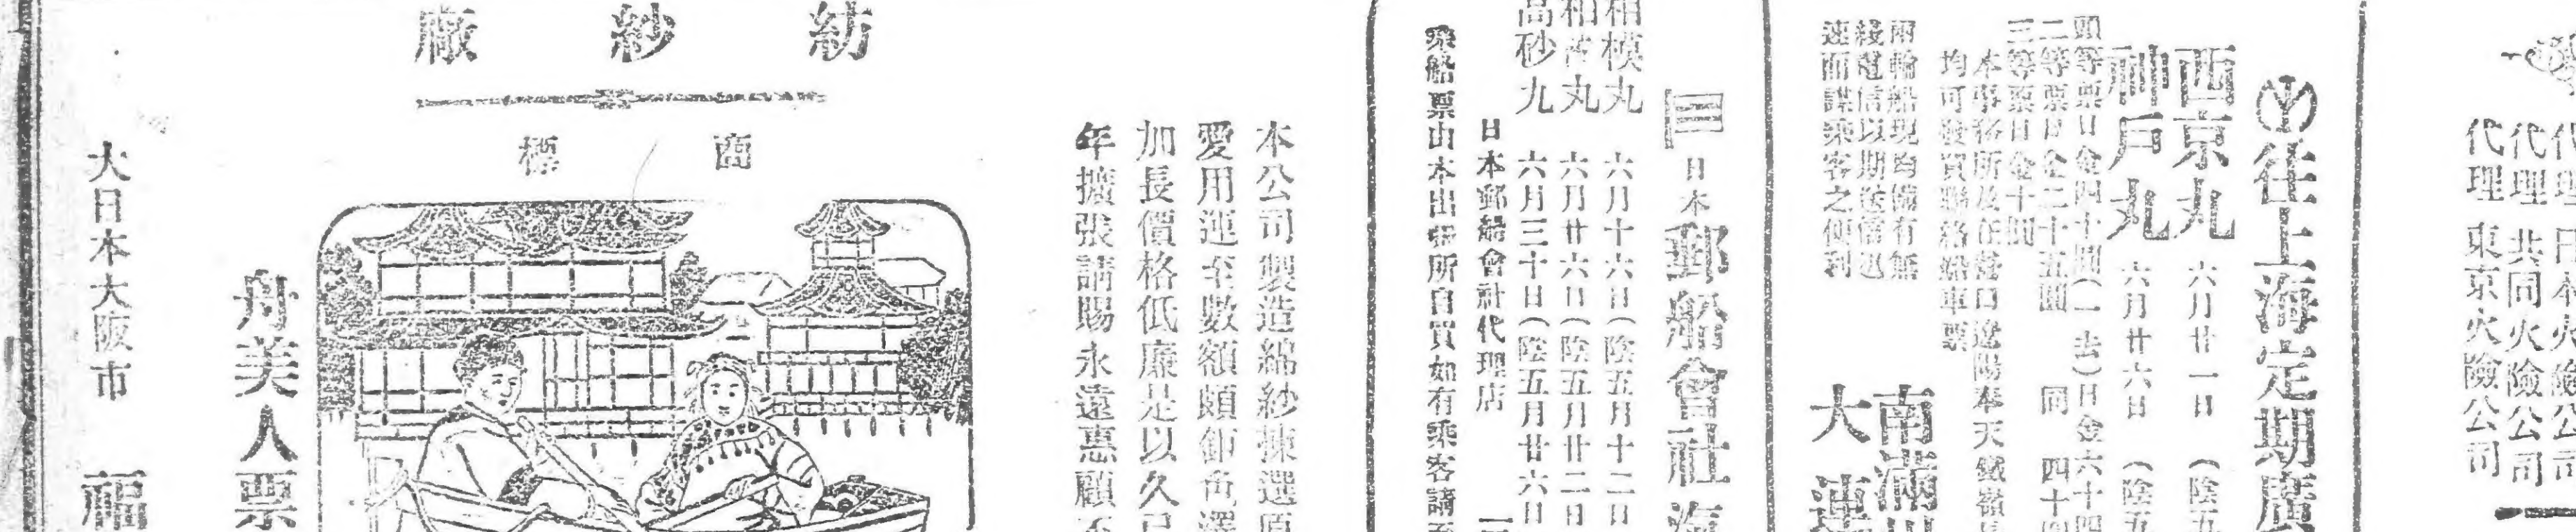 代理
代理 共同火險公司
代理 東京火險公司
往上海定期廣
西京丸 六月廿一日 (陰五
神戶丸 六月廿六日
頭等票日金四十圓(一去)日金六十四
二等票日金二十五圓 同 四十
三等票日金十圓
本事務所及在營口遼陽奉天鐵嶺
均可發賣聯絡船車票
兩輪船現均備有無
綫電信以期送信迅
速而謀乘客之便利
南滿
大連
日本郵船會社
相模丸 六月十六日(陰五月十二日
丸 六月廿六日(陰五月廿二日
高砂丸 六月三十日(陰五月廿六日
日本郵船會社代理店
乘船票由本出張所自買如有乘客請
本公司製造綿紗揀選原
愛用運至數額頗鉅
加長價格低廉是以久已
年擴張請賜永遠惠顧
紡紗廠
商標
舟美人票
大日本大阪市 福